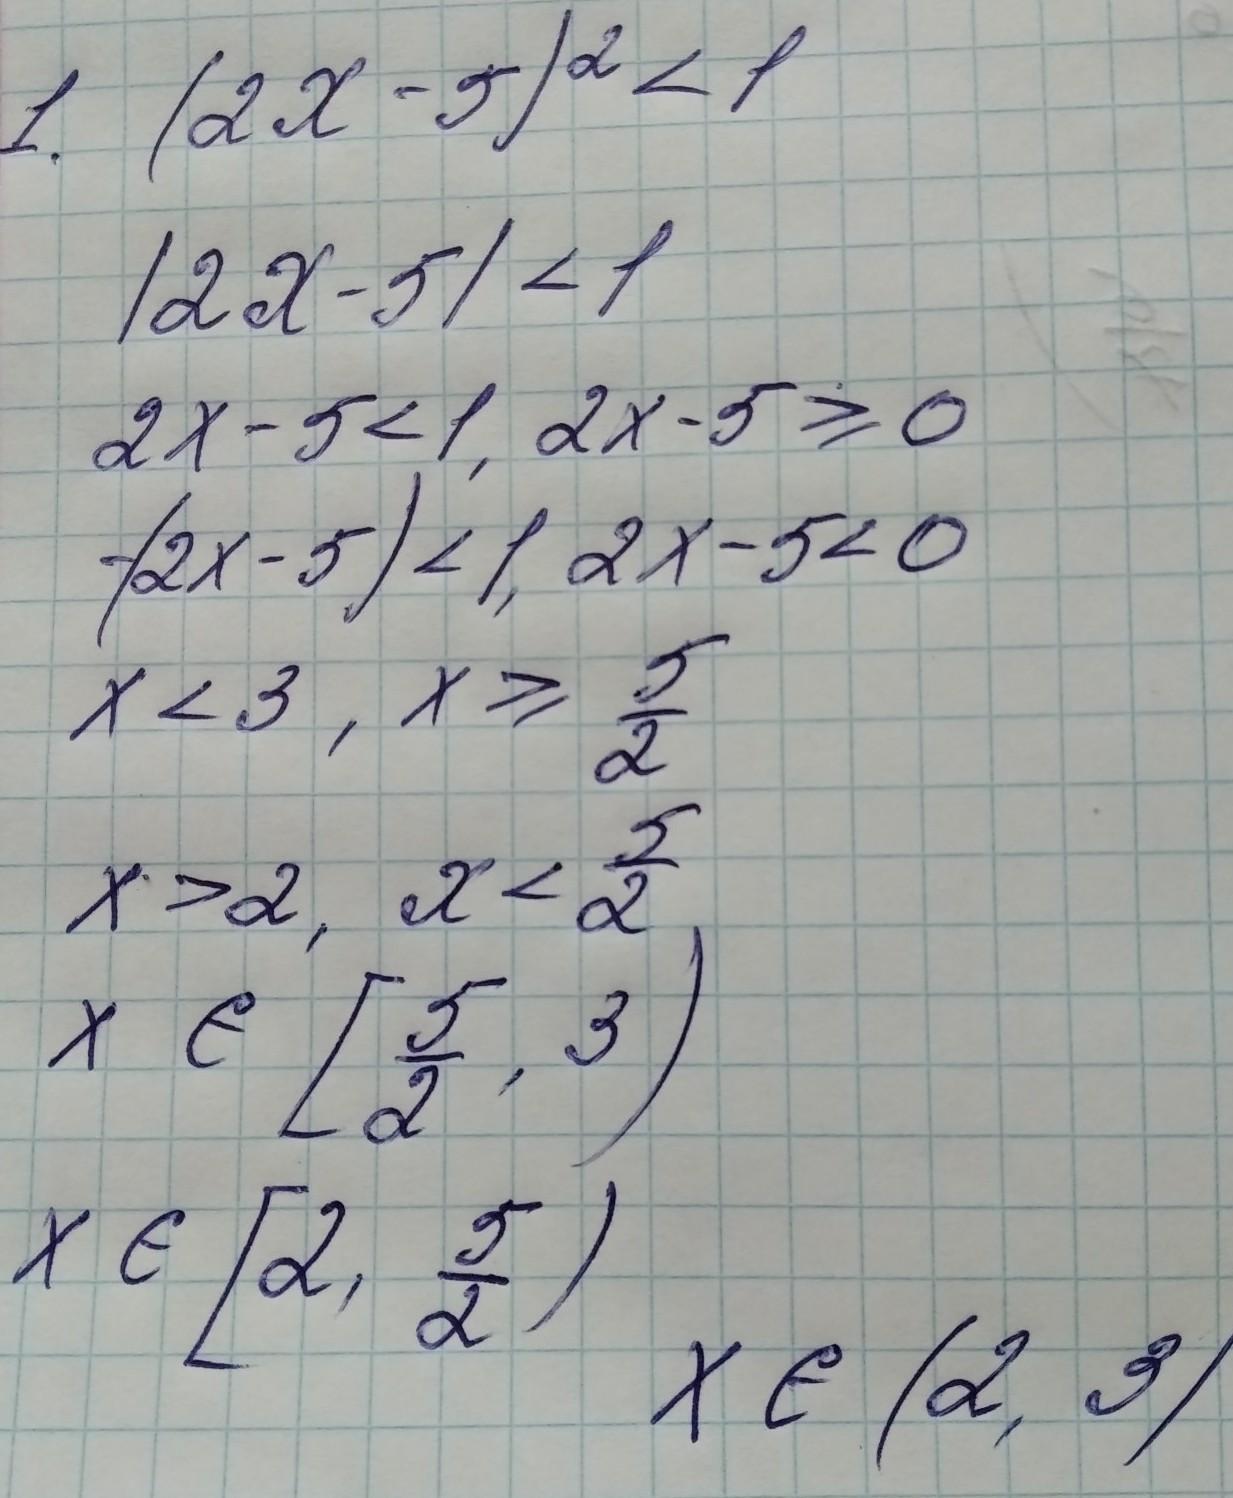 1. (2x - 5)² < 1
|2x - 5| < 1
2x - 5 < 1, 2x - 5 ≥ 0
-(2x - 5) < 1, 2x - 5 < 0
x < 3, x ≥ 5/2
x > 2, x < 5/2
x ∈ [5/2, 3)
x ∈ [2, 5/2)
x ∈ (2, 3)